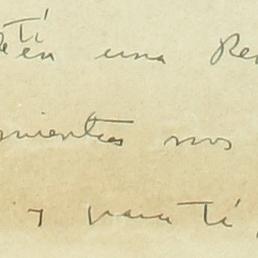 tí
en una Re
mientras nos
y para tí,